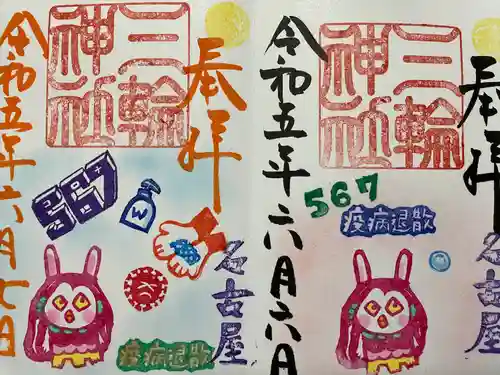 奉拝
三輪
神社
令和五年六月七日
567
W
名古屋
疫病退散
奉拝
三輪
神社
令和五年六月六日
567
疫病退散
名古屋